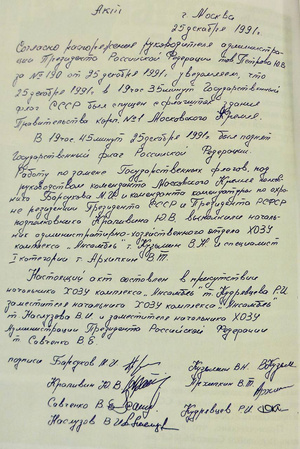 Акт
г Москва
25 декабря 1991г.
Согласно распоряжения руководителя администра-
ции Президента Российской Федерации тов Петрова Ю.В
за № 190 от 25 декабря 1991г, уведомляем, что
25 декабря 1991г, в 19 час 35 минут Государственный
флаг СССР был спущен с флагштока здания
Правительства корп. №1 Московского Кремля.
В 19 час 45 минут 25 декабря 1991г. был поднят
Государственный флаг Российской Федерации
Работу по замене Государственных флагов, под
руководством коменданта Московского Кремля полков-
ника Барсукова М.И и коменданта комендатуры по охра-
не резиденции Президента СССР и Президента РСФСР
подполковника Крапивина Ю.В, выполнили началь-
ник административно-хозяйственного отдела ХОЗУ
комплекса "Ансамбль" т. Кузьмин В.Н и специалист
I категории т Архипкин В.Т.
Настоящий акт составлен в присутствии
начальника ХОЗУ комплекса "Ансамбль" т. Кудрявцева Р.И
заместителя начальника ХОЗУ комплекса "Ансамбль"
т В.И и заместителя начальника ХОЗУ
Администрации Президента Российской Федерации
т Савченко В.Б
подписи Барсуков М.И Кузьмин В.Н.
Крапивин Ю.В Архипкин В.Т
Савченко В.Б Кудрявцев Р.И
В.И